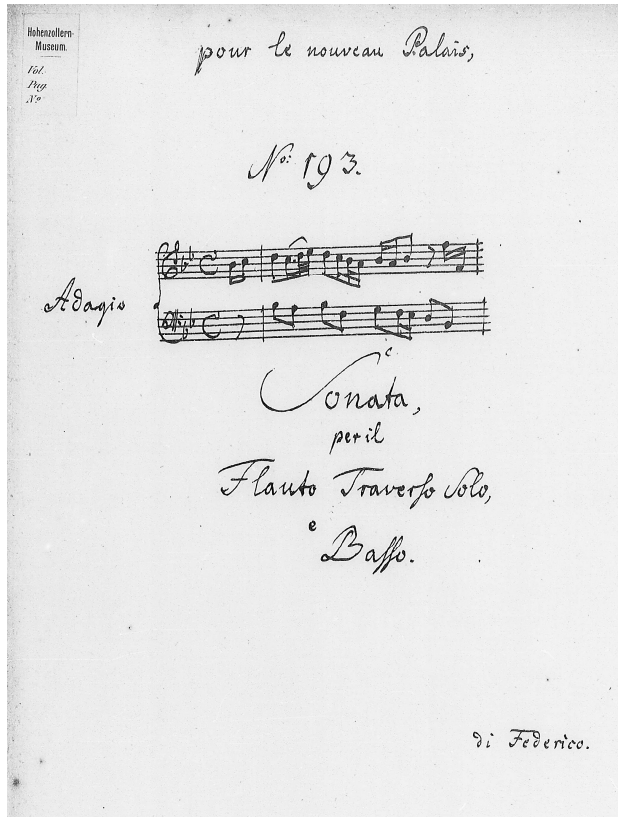 Hohenzollern-
Museum.
Vol.
Pag.
No
pour le nouveau Palais,
No: 193.
Adagio
c
Sonata,
per il
Flauto Traverso Solo,
e
Basso.
di Federico.